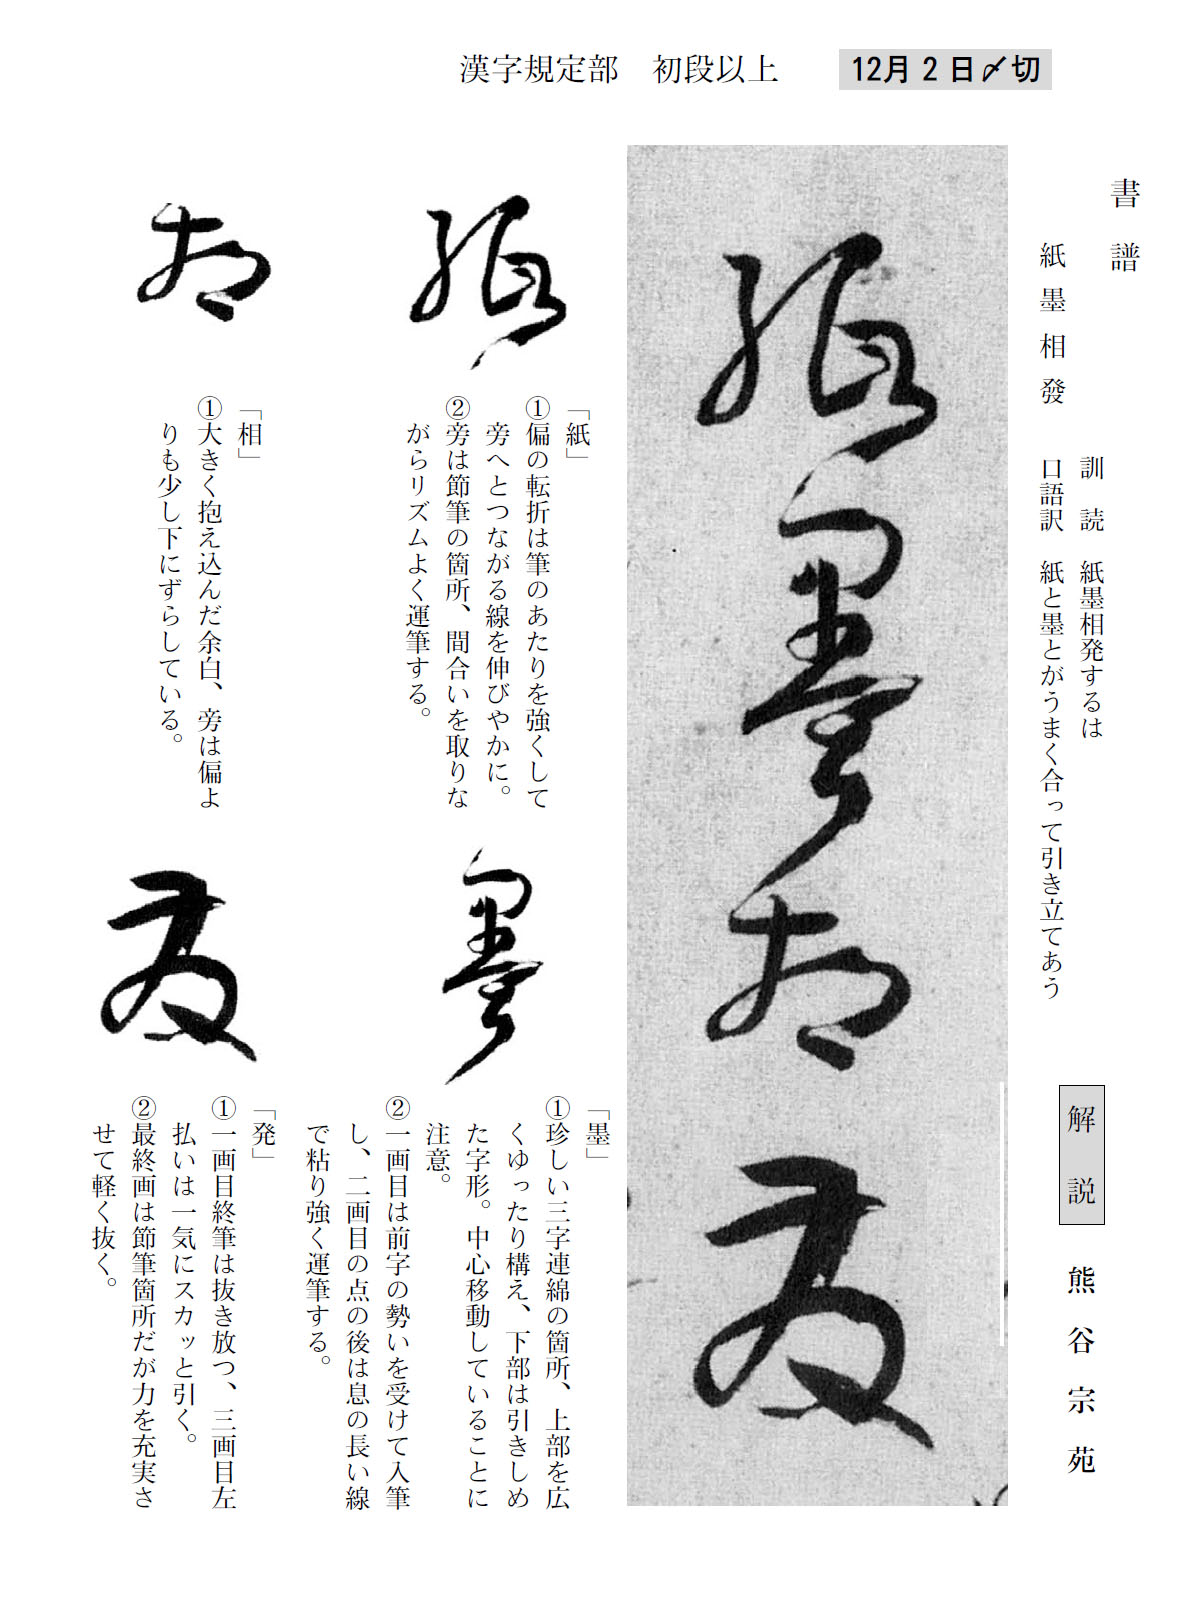 漢字規定部　初段以上
12月2日〆切
書譜
紙墨相發
訓読　紙墨相発するは
口語訳　紙と墨とがうまく合って引き立てあう
解説
熊谷宗苑
紙墨相發
紙
「紙」
①偏の転折は筆のあたりを強くして
旁へとつながる線を伸びやかに。
②旁は節筆の箇所、間合いを取りな
がらリズムよく運筆する。
相
「相」
①大きく抱え込んだ余白、旁は偏よ
りも少し下にずらしている。
墨
「墨」
①珍しい三字連綿の箇所、上部を広
くゆったり構え、下部は引きしめ
た字形。中心移動していることに
注意。
②一画目は前字の勢いを受けて入筆
し、二画目の点の後は息の長い線
で粘り強く運筆する。
發
「発」
①一画目終筆は抜き放つ、三画目左
払いは一気にスカッと引く。
②最終画は節筆箇所だが力を充実さ
せて軽く抜く。